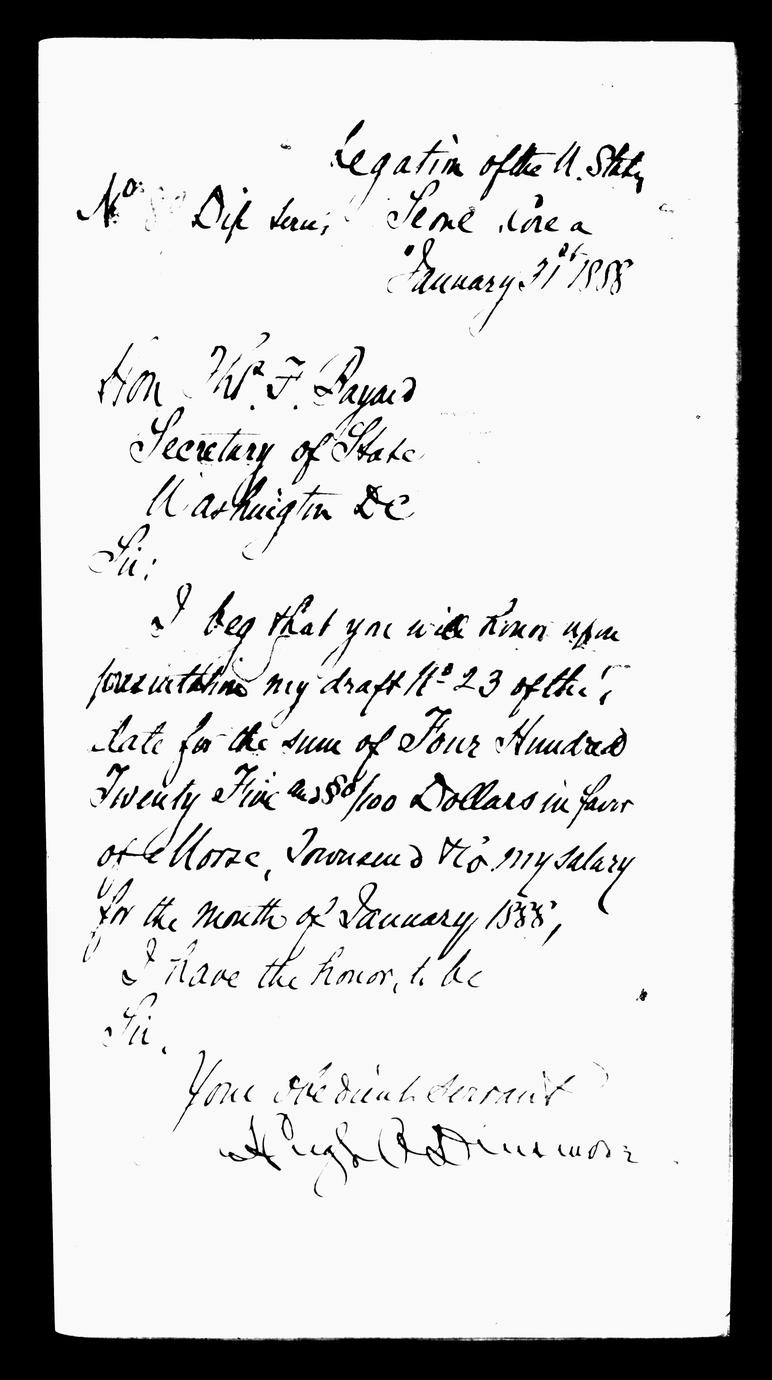 Legation of the U. States
No 80 Dip series Seoul Corea
January 31st 1888
Hon Thos. F. Bayard
Secretary of State
Washington DC
Sir:
I beg that you will honor upon
presentation my draft No 23 of this
date for the sum of Four Hundred
Twenty Five and 80/100 Dollars in favor
of Morse, Townsend & Co my salary
for the month of January 1888,
I have the honor, to be
Sir,
Your obedient servant
Hugh A Dinsmore